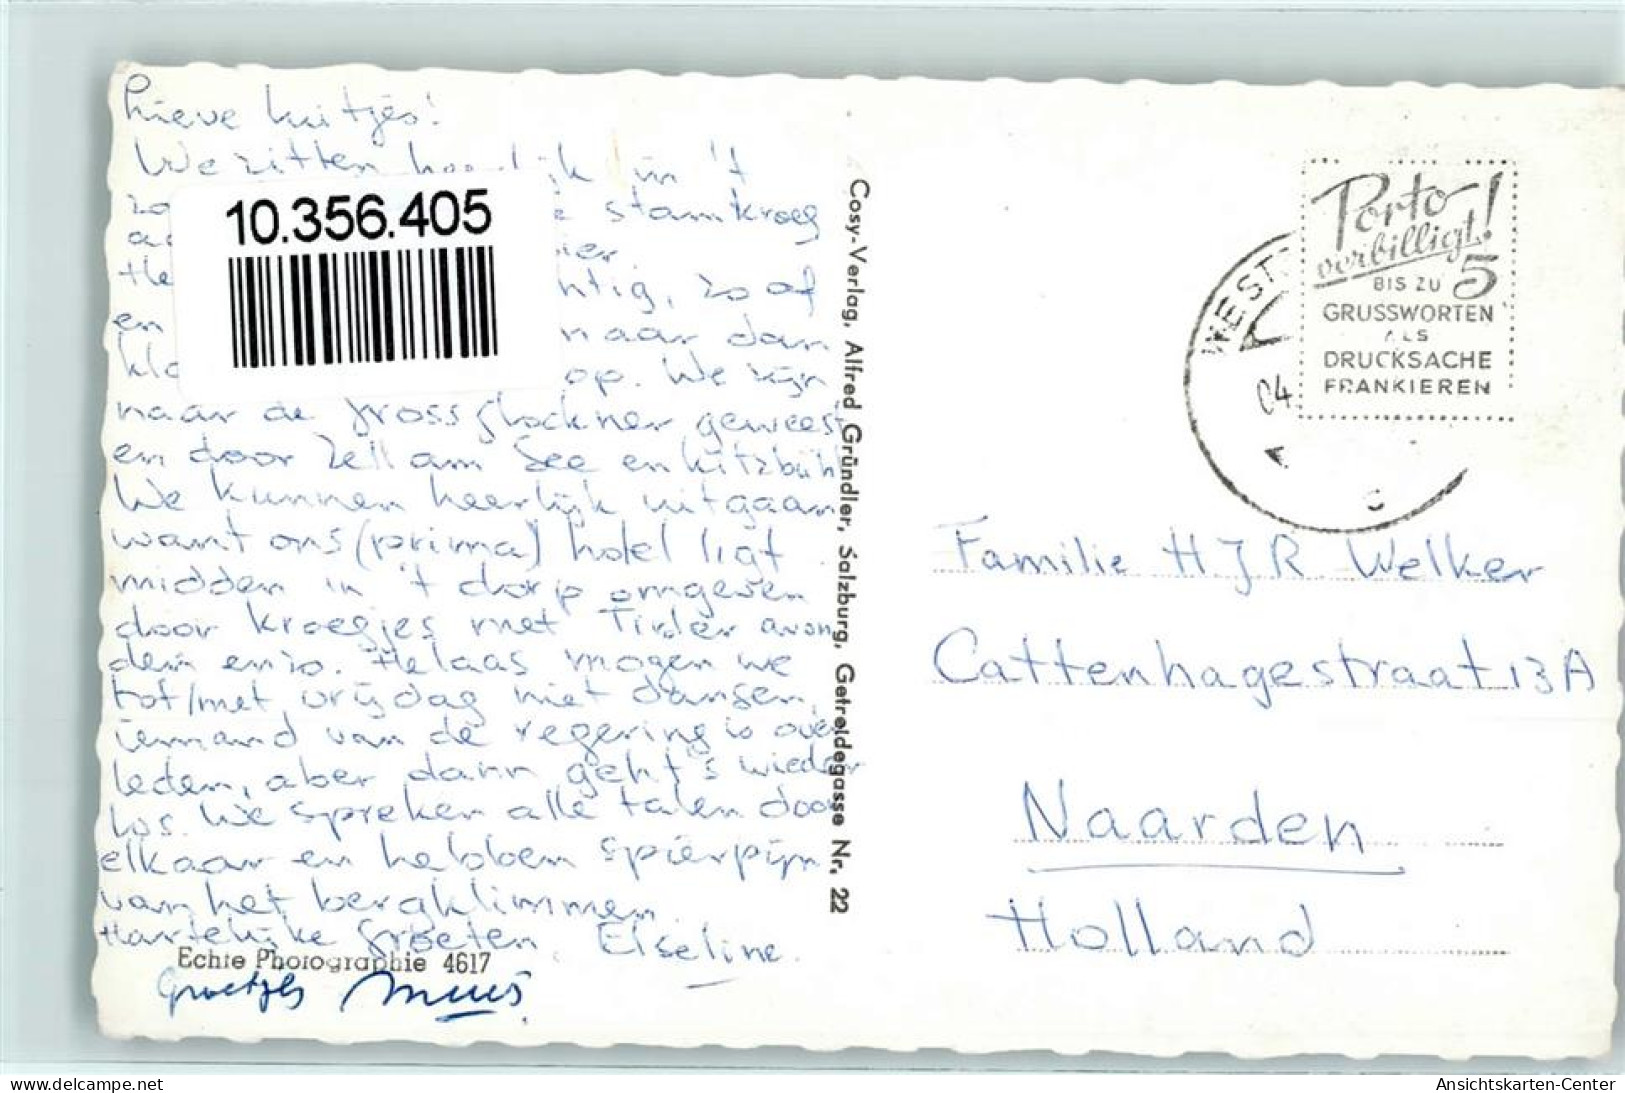 Lieve luitjes!
We zitten in 't
stamkroeg
ntig, zo af
en naar dan
op. We zijn
naar de Grossglockner geweest
en door Zell am See en Kitzbühl
We kunnen heerlijk uitgaan
want ons (prima) hotel ligt
midden in 't dorp omgeven
door kroegjes met Tiroler avon
den enzo. Helaas mogen we
tot/met vrijdag niet dansen,
iemand van de regering is over
leden, aber dann geht's wieder
los. We spreken alle talen door
elkaar en hebben spierpijn
van het bergklimmen.
Hartelijke groeten, Elseline.
Groetjes
10.356.405
Echte Photographie 4617
Cosy-Verlag, Alfred Gründler, Salzburg, Getreidegasse Nr. 22
WEST
04
Porto
verbilligt!
BIS ZU 5
GRUSSWORTEN
ALS
DRUCKSACHE
FRANKIEREN
Familie H J R Welker
Cattenhagestraat 13 A
Naarden
Holland
www.delcampe.net
Ansichtskarten-Center